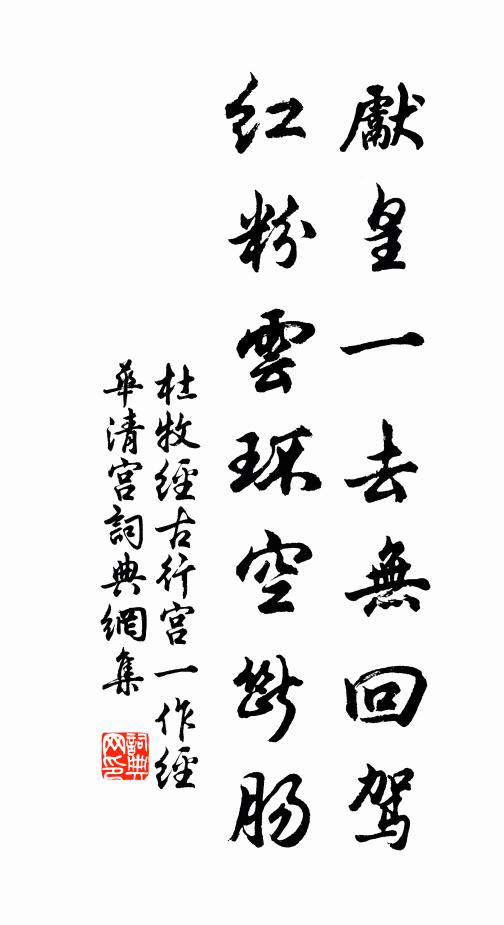 獻皇一去無回駕
紅粉雲環空斷腸
杜牧經古行宮一作經
華清宮詞典網集
詞典網印